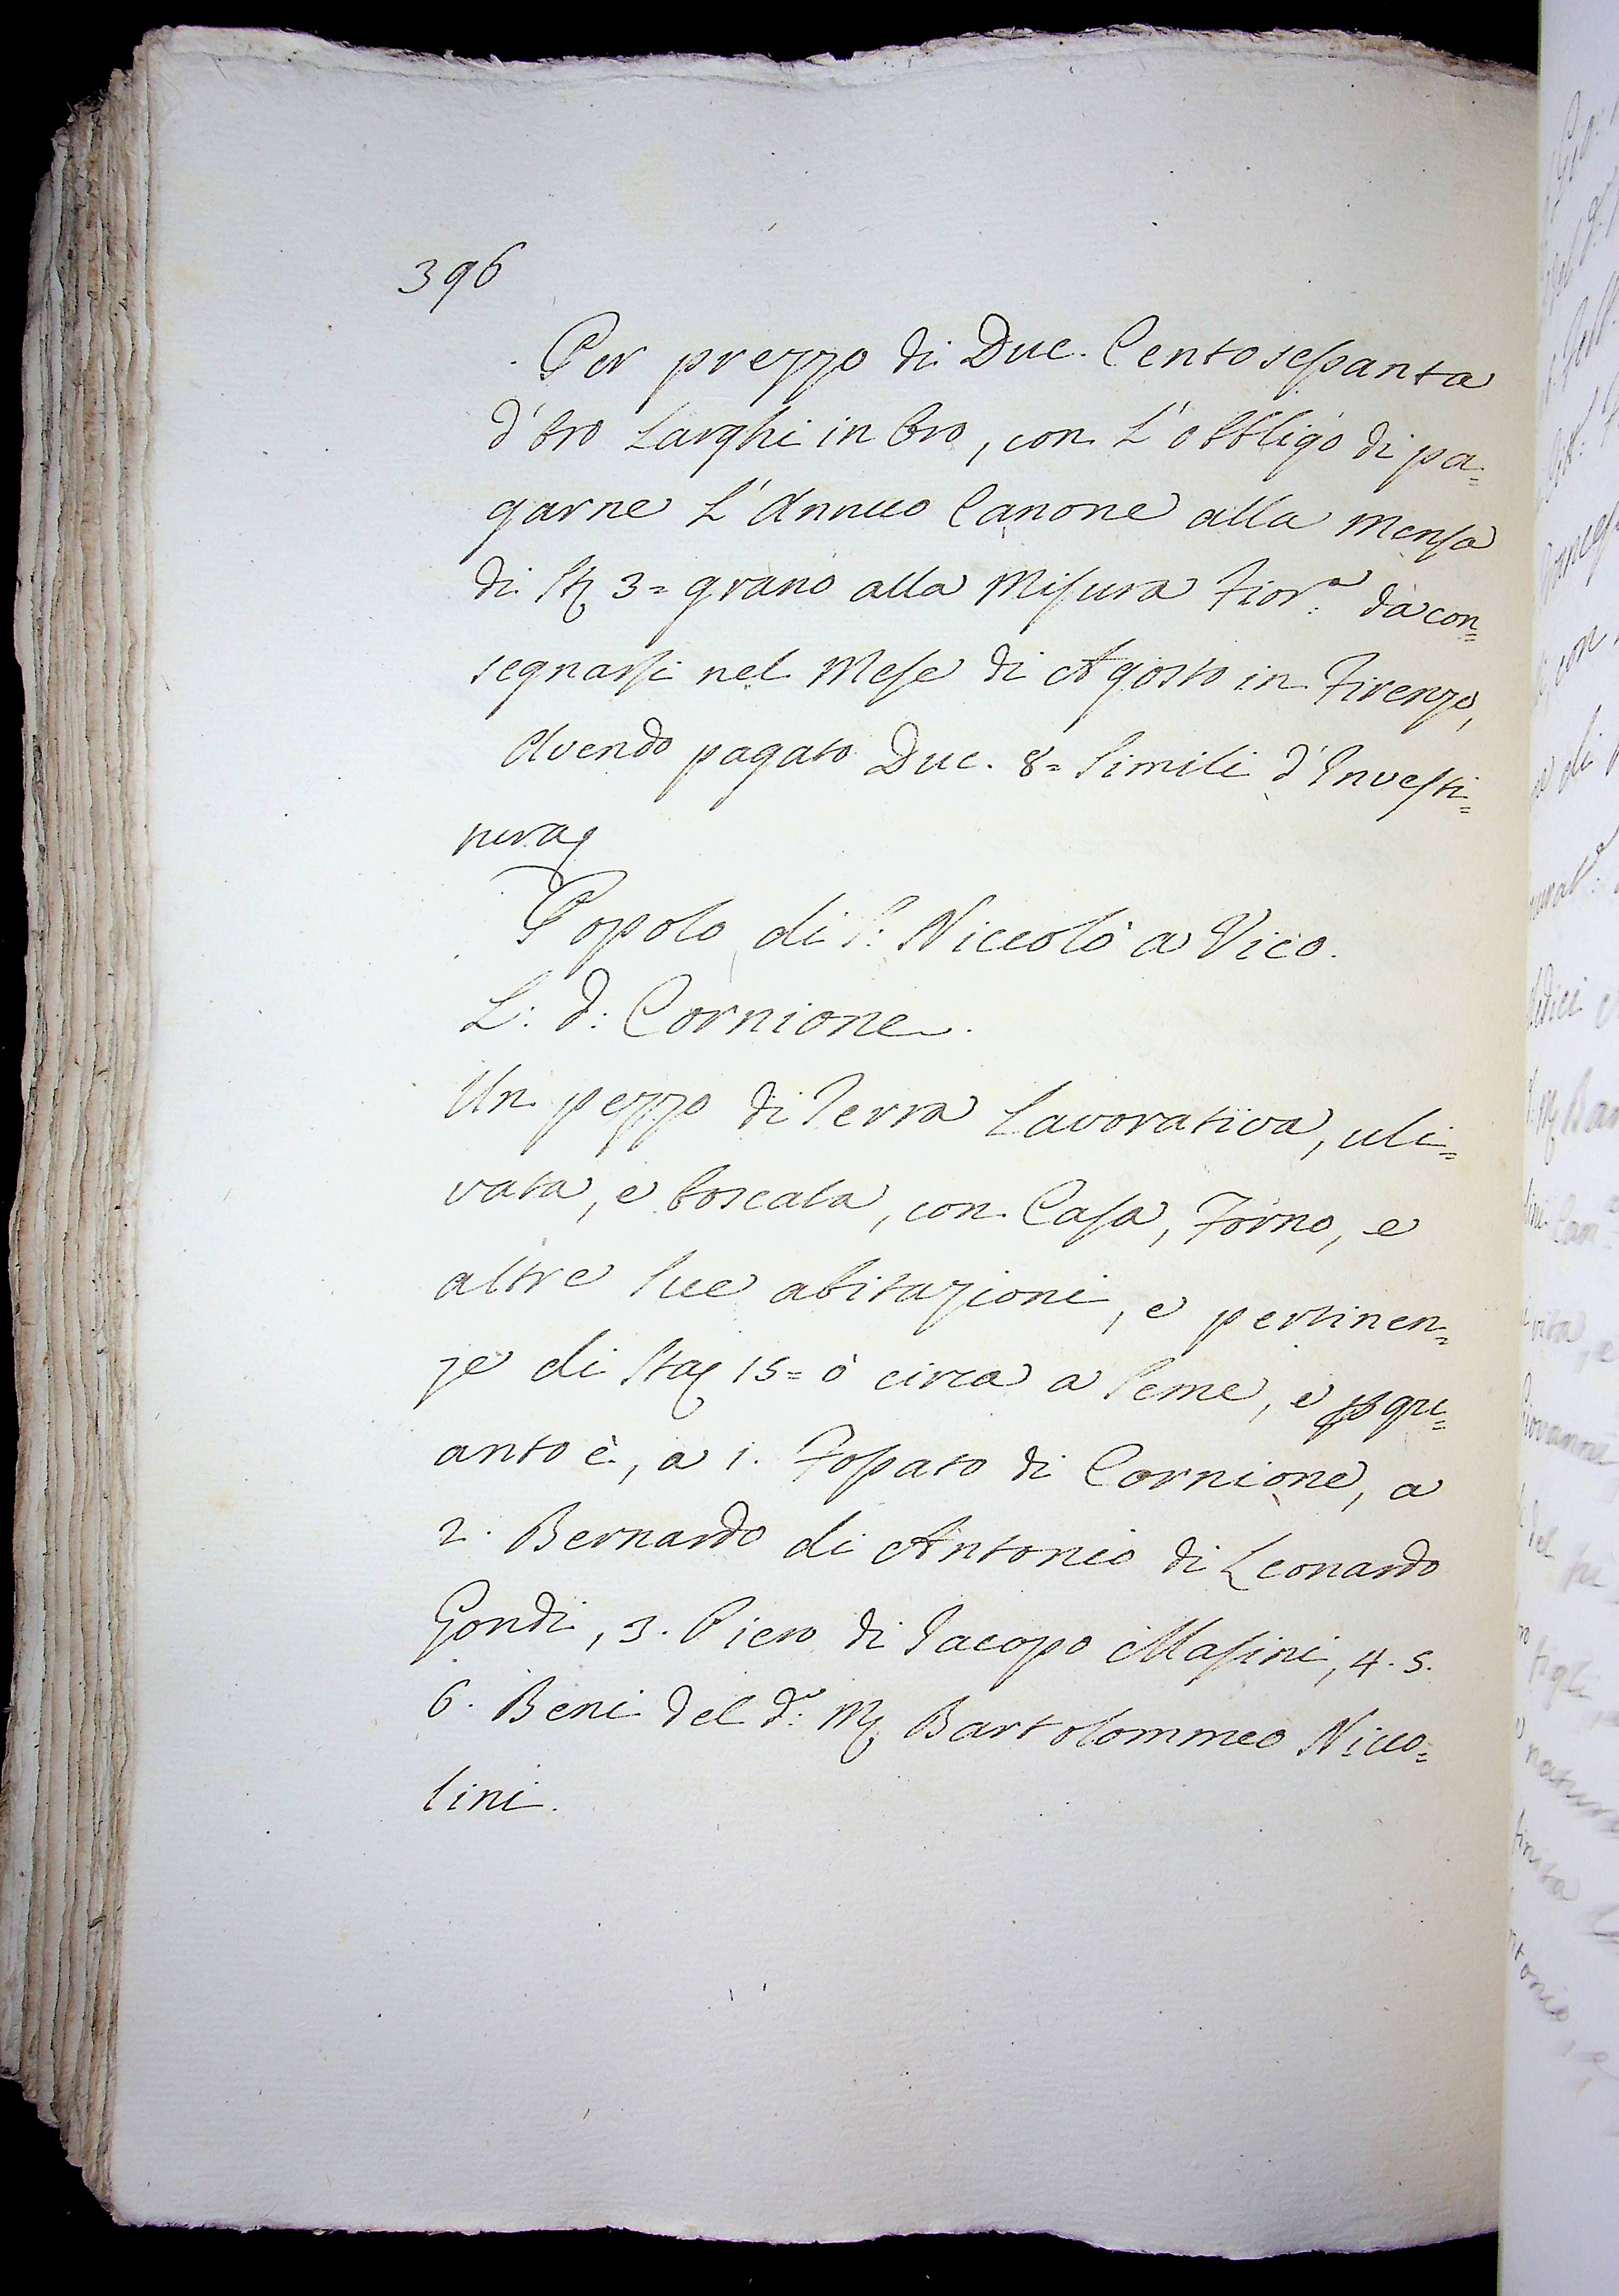 396
Per prezzo di Duc. Centosessanta
d'Oro Larghi in Oro, con L'obbligo di pa=
garne L'Annuo Canone alla Mensa
di St. 3= grano alla Misura Fior.ª da con=
segnarsi nel Mese di Agosto in Firenze,
Avendo pagato Duc. 8= Simili d'Investi=
tura
Popolo di S. Niccolò a Vico.
L: d: Cornione.
Un pezzo di Terra Lavorativa, uli=
vata, e boscata, con Casa, Forno, e
altre Sue abitazioni, e pertinen=
ze di Sta 15= ò circa a Seme, e p qu=
anto è, a 1. Fossato di Cornione, a
2. Bernardo di Antonio di Leonardo
Gondi, 3. Piero di Iacopo Masini, 4. 5.
6. Beni del d.º M. Bartolommeo Nicco=
lini.